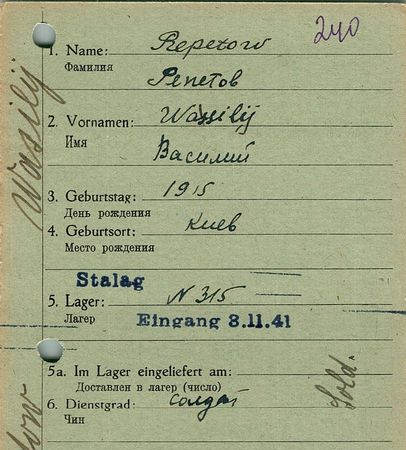 240
1. Name: Repetow
Фамилия Репетов
2. Vornamen: Wassilij
Имя Василий
3. Geburtstag: 1915
День рождения
4. Geburtsort: Киев
Место рождения
Stalag
5. Lager: N 315
Лагерь Eingang 3.11.41
5a. Im Lager eingeliefert am:
Доставлен в лагерь (число)
6. Dienstgrad: солдат
Чин
Sold.
Wasilij